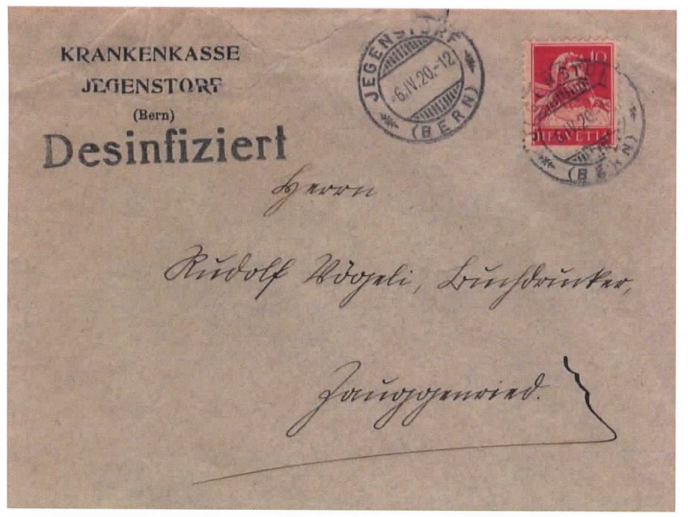 KRANKENKASSE
JEGENSTORF
(Bern)
Desinfiziert
JEGENSTORF
-6.IV.20.-12
(BERN)
10
HELVETIA
(BERN)
Herrn
Rudolf Vögeli, Buchdrucker,
Zauggenried.